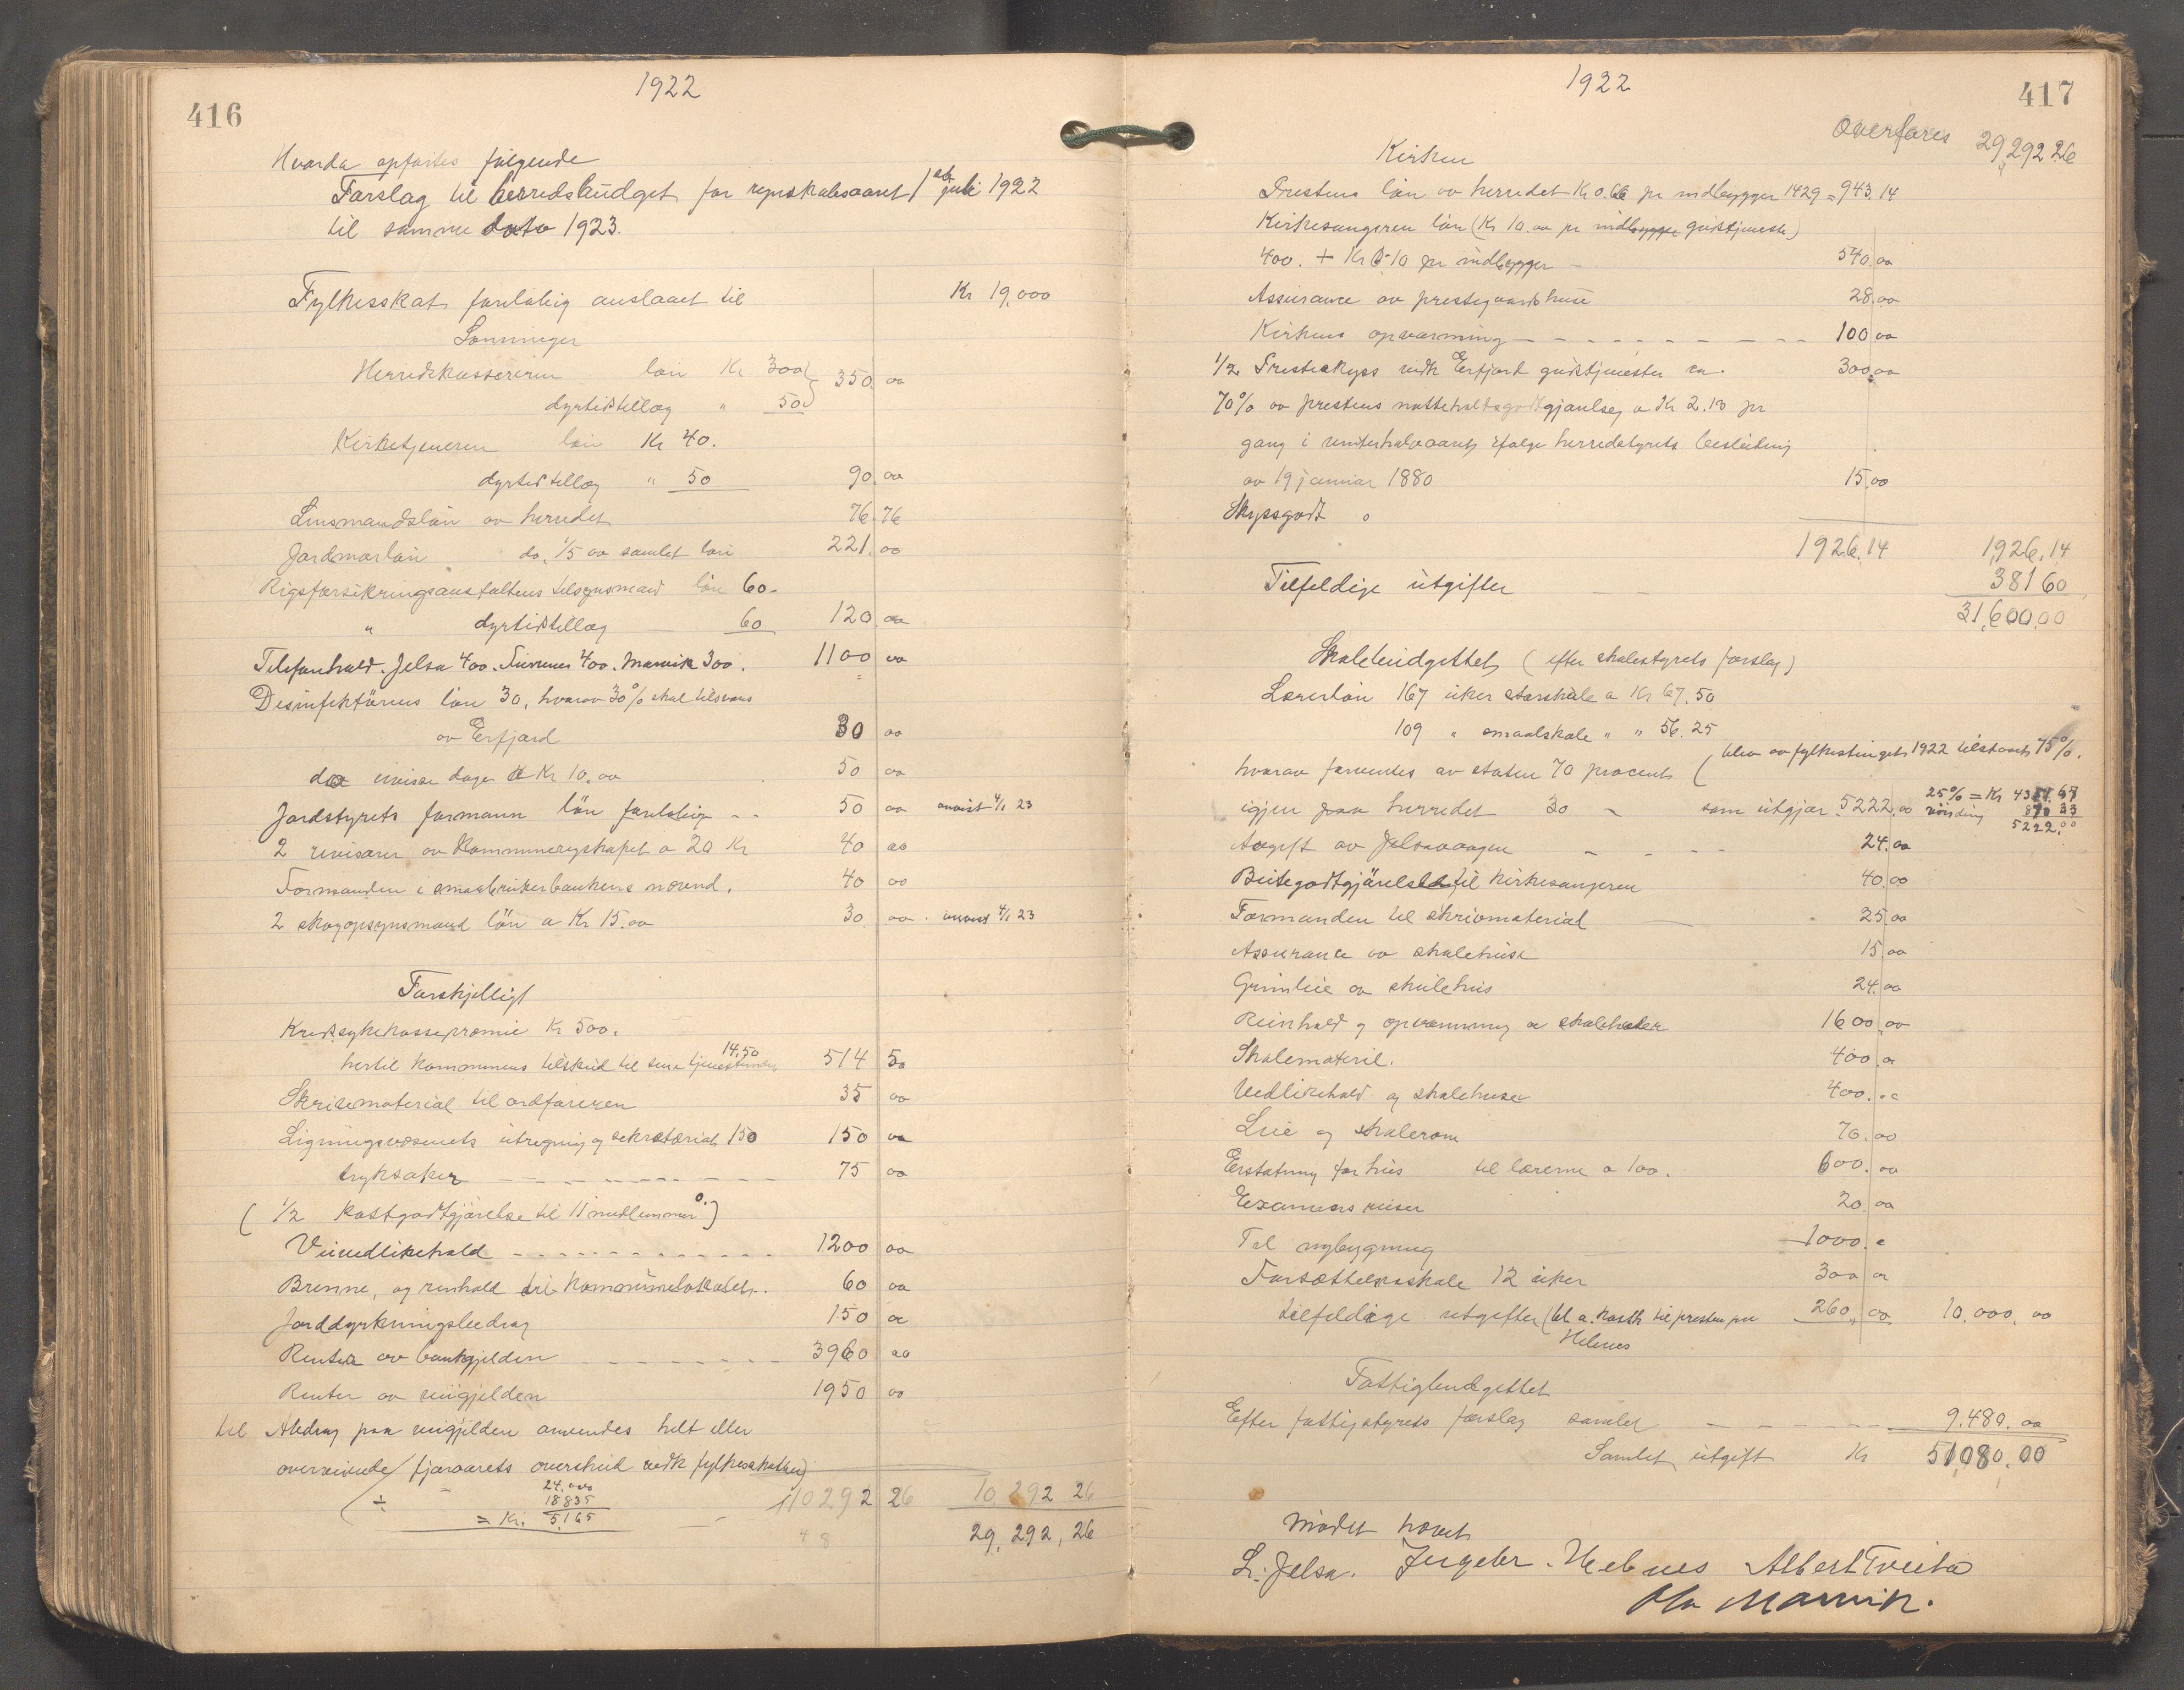 416
1922
Hvorda opførtes følgende
Forslag til herredsbudget for regnskabsaaret 1ste juli 1922
til samme dato 1923.
Fylkesskat foreløbig anslaaet til Kr 19,000
Lønninger
Herredskassereren løn Kr 300
350.00
dyrtidstillæg " 50
Kirketjeneren løn Kr 40.
dyrtidstillæg " 50 90.00
Lensmandsløn av herredet 76.76
Jordmorløn do. 1/5 av samlet løn 221.00
Rigsforsikringsanstaltens tilsynsmand løn 60.
" dyrtidstillæg 60 120 00
Telefonhold. Jelsa 400. 400. Marvik 300. 1100 00
Desinfektørens løn 30, hvorav 30% skal tilsvares
av Erfjord 30 00
do visse dage a Kr 10.00 50 00
Jordstyrets formann løn foreløbig 50 00 anvist 4/1 23
2 revisorer av kommuneregnskapet a 20 Kr 40 00
Formanden i smaabrukerbankens nævnd. 40 00
2 skogopsynsmænd løn a Kr 15.00 30 00 anvist 4/1 23
Forskjelligt
Kredssykekassepræmie Kr 500.
hertil kommunens tilskud til sine tjenestemænd 14.50 514 50
Skrivematerial til ordføreren 35 00
Ligningsvæsenets utregning og sekretariat 150 150 00
tryksaker 75 00
( 1/2 kostgodtgjørelse til 11 medlemmer 0. )
Veivedlikehold 1200 00
Brenne, og renhold til kommunelokalet. 60 00
Jorddyrkningsbidrag 150 00
Renter av bankgjelden 3960 00
Renter av veigjelden 1950 00
til Avdrag paa veigjelden anvendes helt eller
overveiende fjoraarets overskud vedk fylkesskatten
24.000
÷ 18835
= Kr. 5165
10292 26 10,292 26
48
29,292,26
417
1922
Overføres 29,292 26
Kirken
Prestens løn av herredet Kr 0.66 pr indbygger 1429 = 943.14
Kirkesangeren løn (Kr 10.00 pr indbygger gudstjeneste)
400. + Kr 0.10 pr indbygger 540.00
Assurance av prestegaardshuse 28.00
Kirkens opvarmning 100 00
1/2 Presteskyss vedk Erfjord gudstjenester ca. 300,00
70% av prestens natteholdsgodtgjørelse a Kr 2.13 pr
gang i vinterhalvaaret ifølge herredstyrets beslutning
av 19 januar 1880 15.00
Skyssgodt 0
1926.14 1,926.14
Tilfeldige utgifter 381 60
31,600,00
Skolebudgettet (efter skolestyrets forslag)
Lærerløn 167 uker storskole a Kr 67.50
109 " smaaskole " " 56.25
(blev av fylkestinget 1922 tilstaaet 75%.
hvorav forventes av staten 70 procent
igjen paa herredet 30 ~ som utgjør 5222,00
25% = Kr 4351.67
870 33
5222.00
Avgift av Jelsavaagen 24.00
Beitegodtgjørelse til kirkesangeren 40.00
Formanden til skrivmaterial 25.00
Assurance av skolehuse 15.00
Grunleie av skolehus 24.00
Reinhold og opvarmning av skolelokaler 1600.00
Skolemateriel. 400.00
Vedlikehold og skolehuse 400.00
Leie og skolerom 70.00
Erstatning for hus til lærerne a 100. 600.00
Examens reiser 20.00
Til nybygning 1000.
Forsættelsesskole 12 uker 300 00
tilfeldige utgifter (bl a. kosth til presten pa 260,00 10.000,00
Helnes
Fattigbudgettet
Efter fattigstyrets forslag samlet 9.480.00
Samlet utgift Kr 51,080.00
Mødet hævet
L. Jelsa. Ingebr. Hebnes Albert Tveita
Ola Marvik.